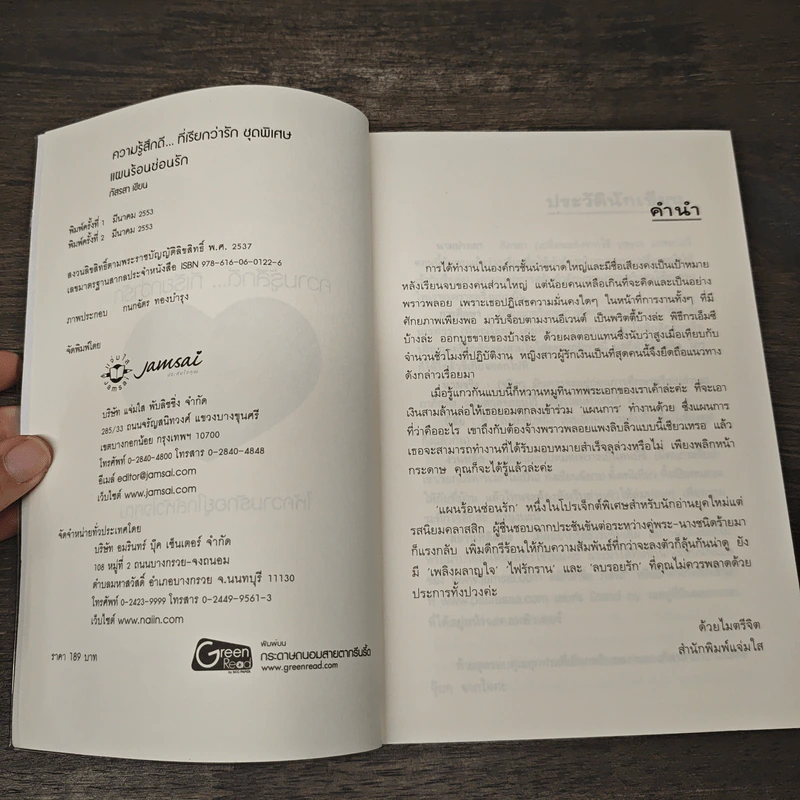 ความรู้สึกดี... ที่เรียกว่ารัก ชุดพิเศษ
แผนร้อนซ่อนรัก
ภัสรสา เขียน
พิมพ์ครั้งที่ 1 มีนาคม 2553
พิมพ์ครั้งที่ 2 มีนาคม 2553
สงวนลิขสิทธิ์ตามพระราชบัญญัติลิขสิทธิ์ พ.ศ. 2537
เลขมาตรฐานสากลประจำหนังสือ ISBN 978-616-06-0122-6
ภาพประกอบ กนกฉัตร ทองบำรุง
จัดพิมพ์โดย
jamsai
บริษัท แจ่มใส พับลิชชิ่ง จำกัด
285/33 ถนนจรัญสนิทวงศ์ แขวงบางขุนศรี
เขตบางกอกน้อย กรุงเทพฯ 10700
โทรศัพท์ 0-2840-4800 โทรสาร 0-2840-4848
อีเมล์ editor@jamsai.com
เว็บไซต์ www.jamsai.com
จัดจำหน่ายทั่วประเทศโดย
บริษัท อมรินทร์ บุ๊ค เซ็นเตอร์ จำกัด
108 หมู่ที่ 2 ถนนบางกรวย-จงถนอม
ตำบลมหาสวัสดิ์ อำเภอบางกรวย จ.นนทบุรี 11130
โทรศัพท์ 0-2423-9999 โทรสาร 0-2449-9561-3
เว็บไซต์ www.naiin.com
ราคา 189 บาท
Green Read
พิมพ์บน
กระดาษถนอมสายตากรีนรี้ด
www.greenread.com
คำนำ
การได้ทำงานในองค์กรชั้นนำขนาดใหญ่และมีชื่อเสียงคงเป็นเป้าหมาย
หลังเรียนจบของคนส่วนใหญ่ แต่น้อยคนเหลือเกินที่จะคิดและเป็นอย่าง
พราวพลอย เพราะเธอปฏิเสธความมั่นคงใดๆ ในหน้าที่การงานทั้งๆ ที่มี
ศักยภาพเพียงพอ มารับจ็อบตามงานอีเวนต์ เป็นพริตตี้บ้างล่ะ พิธีกรเอ็มซี
บ้างล่ะ ออกบูธขายของบ้างล่ะ ด้วยผลตอบแทนซึ่งนับว่าสูงเมื่อเทียบกับ
จำนวนชั่วโมงที่ปฏิบัติงาน หญิงสาวผู้รักเงินเป็นที่สุดคนนี้จึงยึดถือแนวทาง
ดังกล่าวเรื่อยมา
เมื่อรู้แกวกันแบบนี้ก็หวานหมูทินาทพระเอกของเราเค้าล่ะค่ะ ที่จะเอา
เงินสามล้านล่อให้เธอยอมตกลงเข้าร่วม 'แผนการ' ทำงานด้วย ซึ่งแผนการ
ที่ว่าคืออะไร เขาถึงกับต้องจ้างพราวพลอยแพงลิบลิ่วแบบนี้เชียวเหรอ แล้ว
เธอจะสามารถทำงานที่ได้รับมอบหมายสำเร็จลุล่วงหรือไม่ เพียงพลิกหน้า
กระดาษ คุณก็จะได้รู้แล้วล่ะค่ะ
'แผนร้อนซ่อนรัก' หนึ่งในโปรเจ็กต์พิเศษสำหรับนักอ่านยุคใหม่แต่
รสนิยมคลาสสิก ผู้ชื่นชอบฉากประชันขันต่อระหว่างคู่พระ-นางชนิดร้ายมา
ก็แรงกลับ เพิ่มดีกรีร้อนให้กับความสัมพันธ์ที่กว่าจะลงตัวก็ลุ้นกันน่าดู ยัง
มี 'เพลิงผลาญใจ' 'ไฟรักราน' และ 'ลบรอยรัก' ที่คุณไม่ควรพลาดด้วย
ประการทั้งปวงค่ะ
ด้วยไมตรีจิต
สำนักพิมพ์แจ่มใส